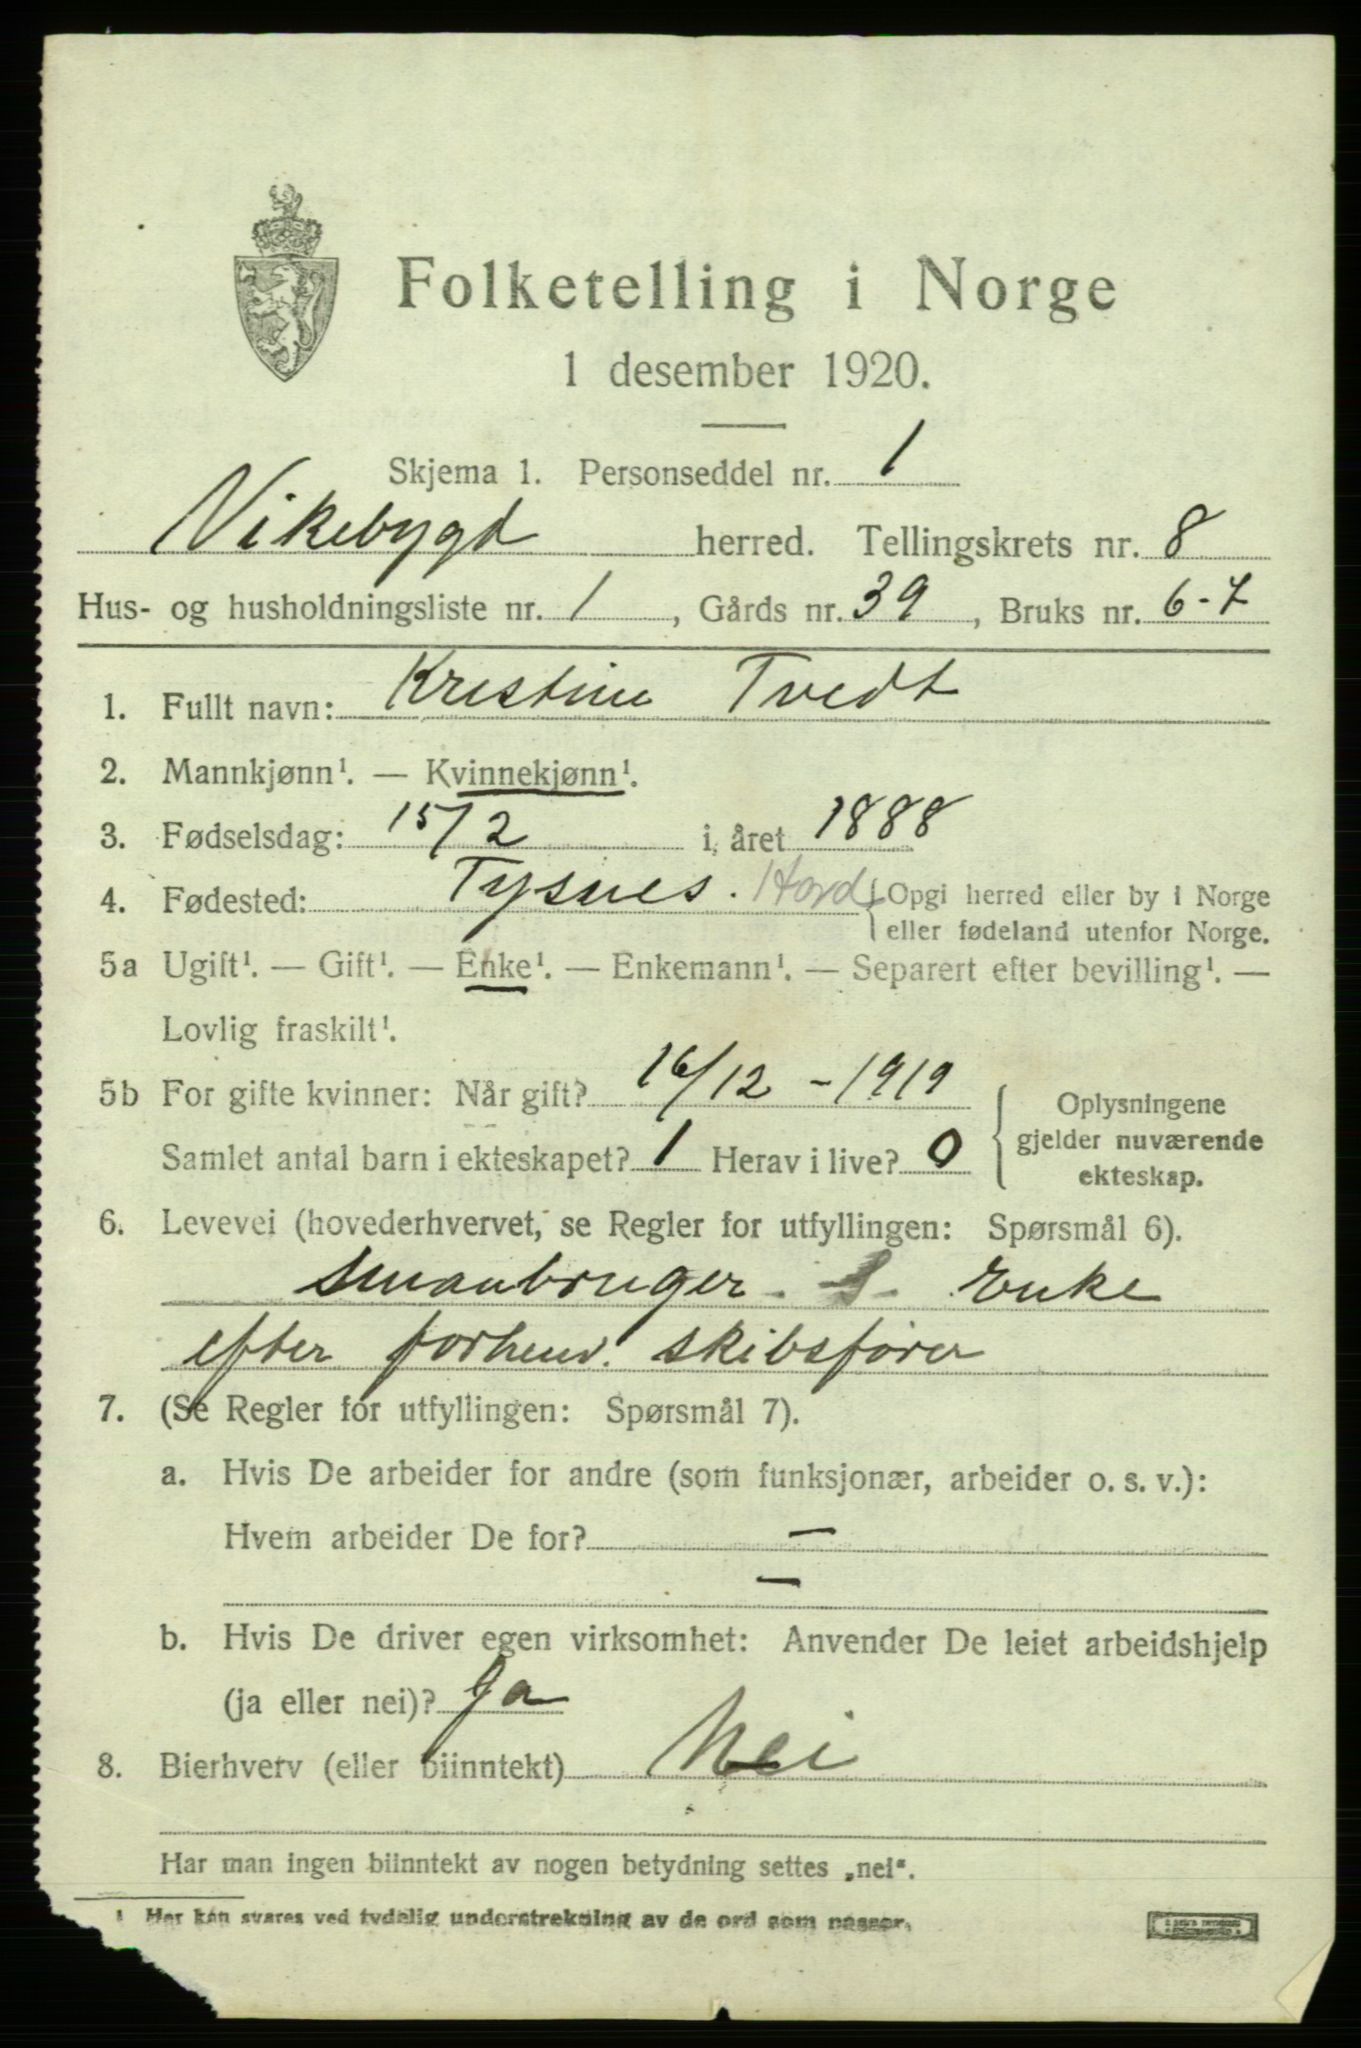 Folketelling i Norge
1 desember 1920.
Skjema 1. Personseddel nr. 1
Vikebygd herred. Tellingskrets nr. 8
Hus- og husholdningsliste nr. 1, Gårds nr. 39, Bruks nr. 6-7
1. Fullt navn: Kristine Tvedt
2. Mannkjønn¹. — Kvinnekjønn¹.
3. Fødselsdag: 15/2 i året 1888
4. Fødested: Tysnes. Hord { Opgi herred eller by i Norge
eller fødeland utenfor Norge.
5a Ugift¹. — Gift¹. — Enke¹. — Enkemann¹. — Separert efter bevilling¹. —
Lovlig fraskilt¹.
5b For gifte kvinner: Når gift? 16/12 - 1919
Samlet antal barn i ekteskapet? 1 Herav i live? 0
{ Oplysningene
gjelder nuværende
ekteskap.
6. Levevei (hovederhvervet, se Regler for utfyllingen: Spørsmål 6).
smaabruger. S. Enke
efter forhenv. skibsfører
7. (Se Regler for utfyllingen: Spørsmål 7).
a. Hvis De arbeider for andre (som funksjonær, arbeider o. s. v.):
Hvem arbeider De for? —
—
b. Hvis De driver egen virksomhet: Anvender De leiet arbeidshjelp
(ja eller nei)? Ja
8. Bierhverv (eller biinntekt) Nei
Har man ingen biinntekt av nogen betydning settes „nei“.
¹ Her kan svares ved tydelig understrekning av de ord som passer.